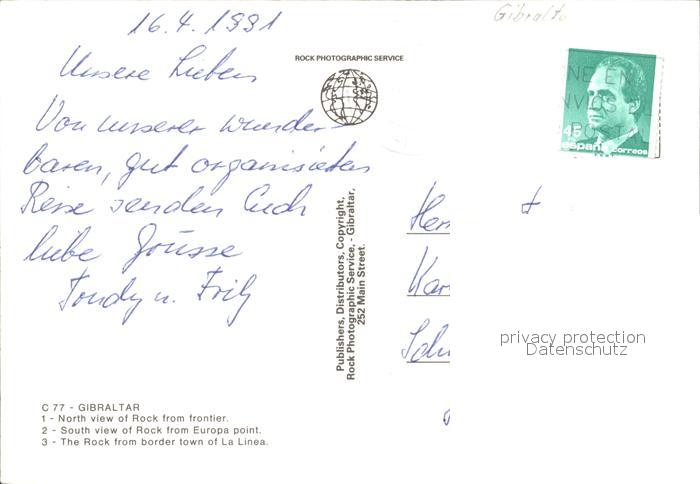 16.4.1991
Gibralta
Unsere Lieben
ROCK PHOTOGRAPHIC SERVICE
Von unserer wunder-
baren, gut organisierten
Reise senden Euch
liebe Grüsse
u. Fritz
45
españa correos
Publishers, Distributors, Copyright,
Rock Photographic Service, - Gibraltar,
252 Main Street.
privacy protection
Datenschutz
C 77 - GIBRALTAR
1 - North view of Rock from frontier.
2 - South view of Rock from Europa point.
3 - The Rock from border town of La Linea.